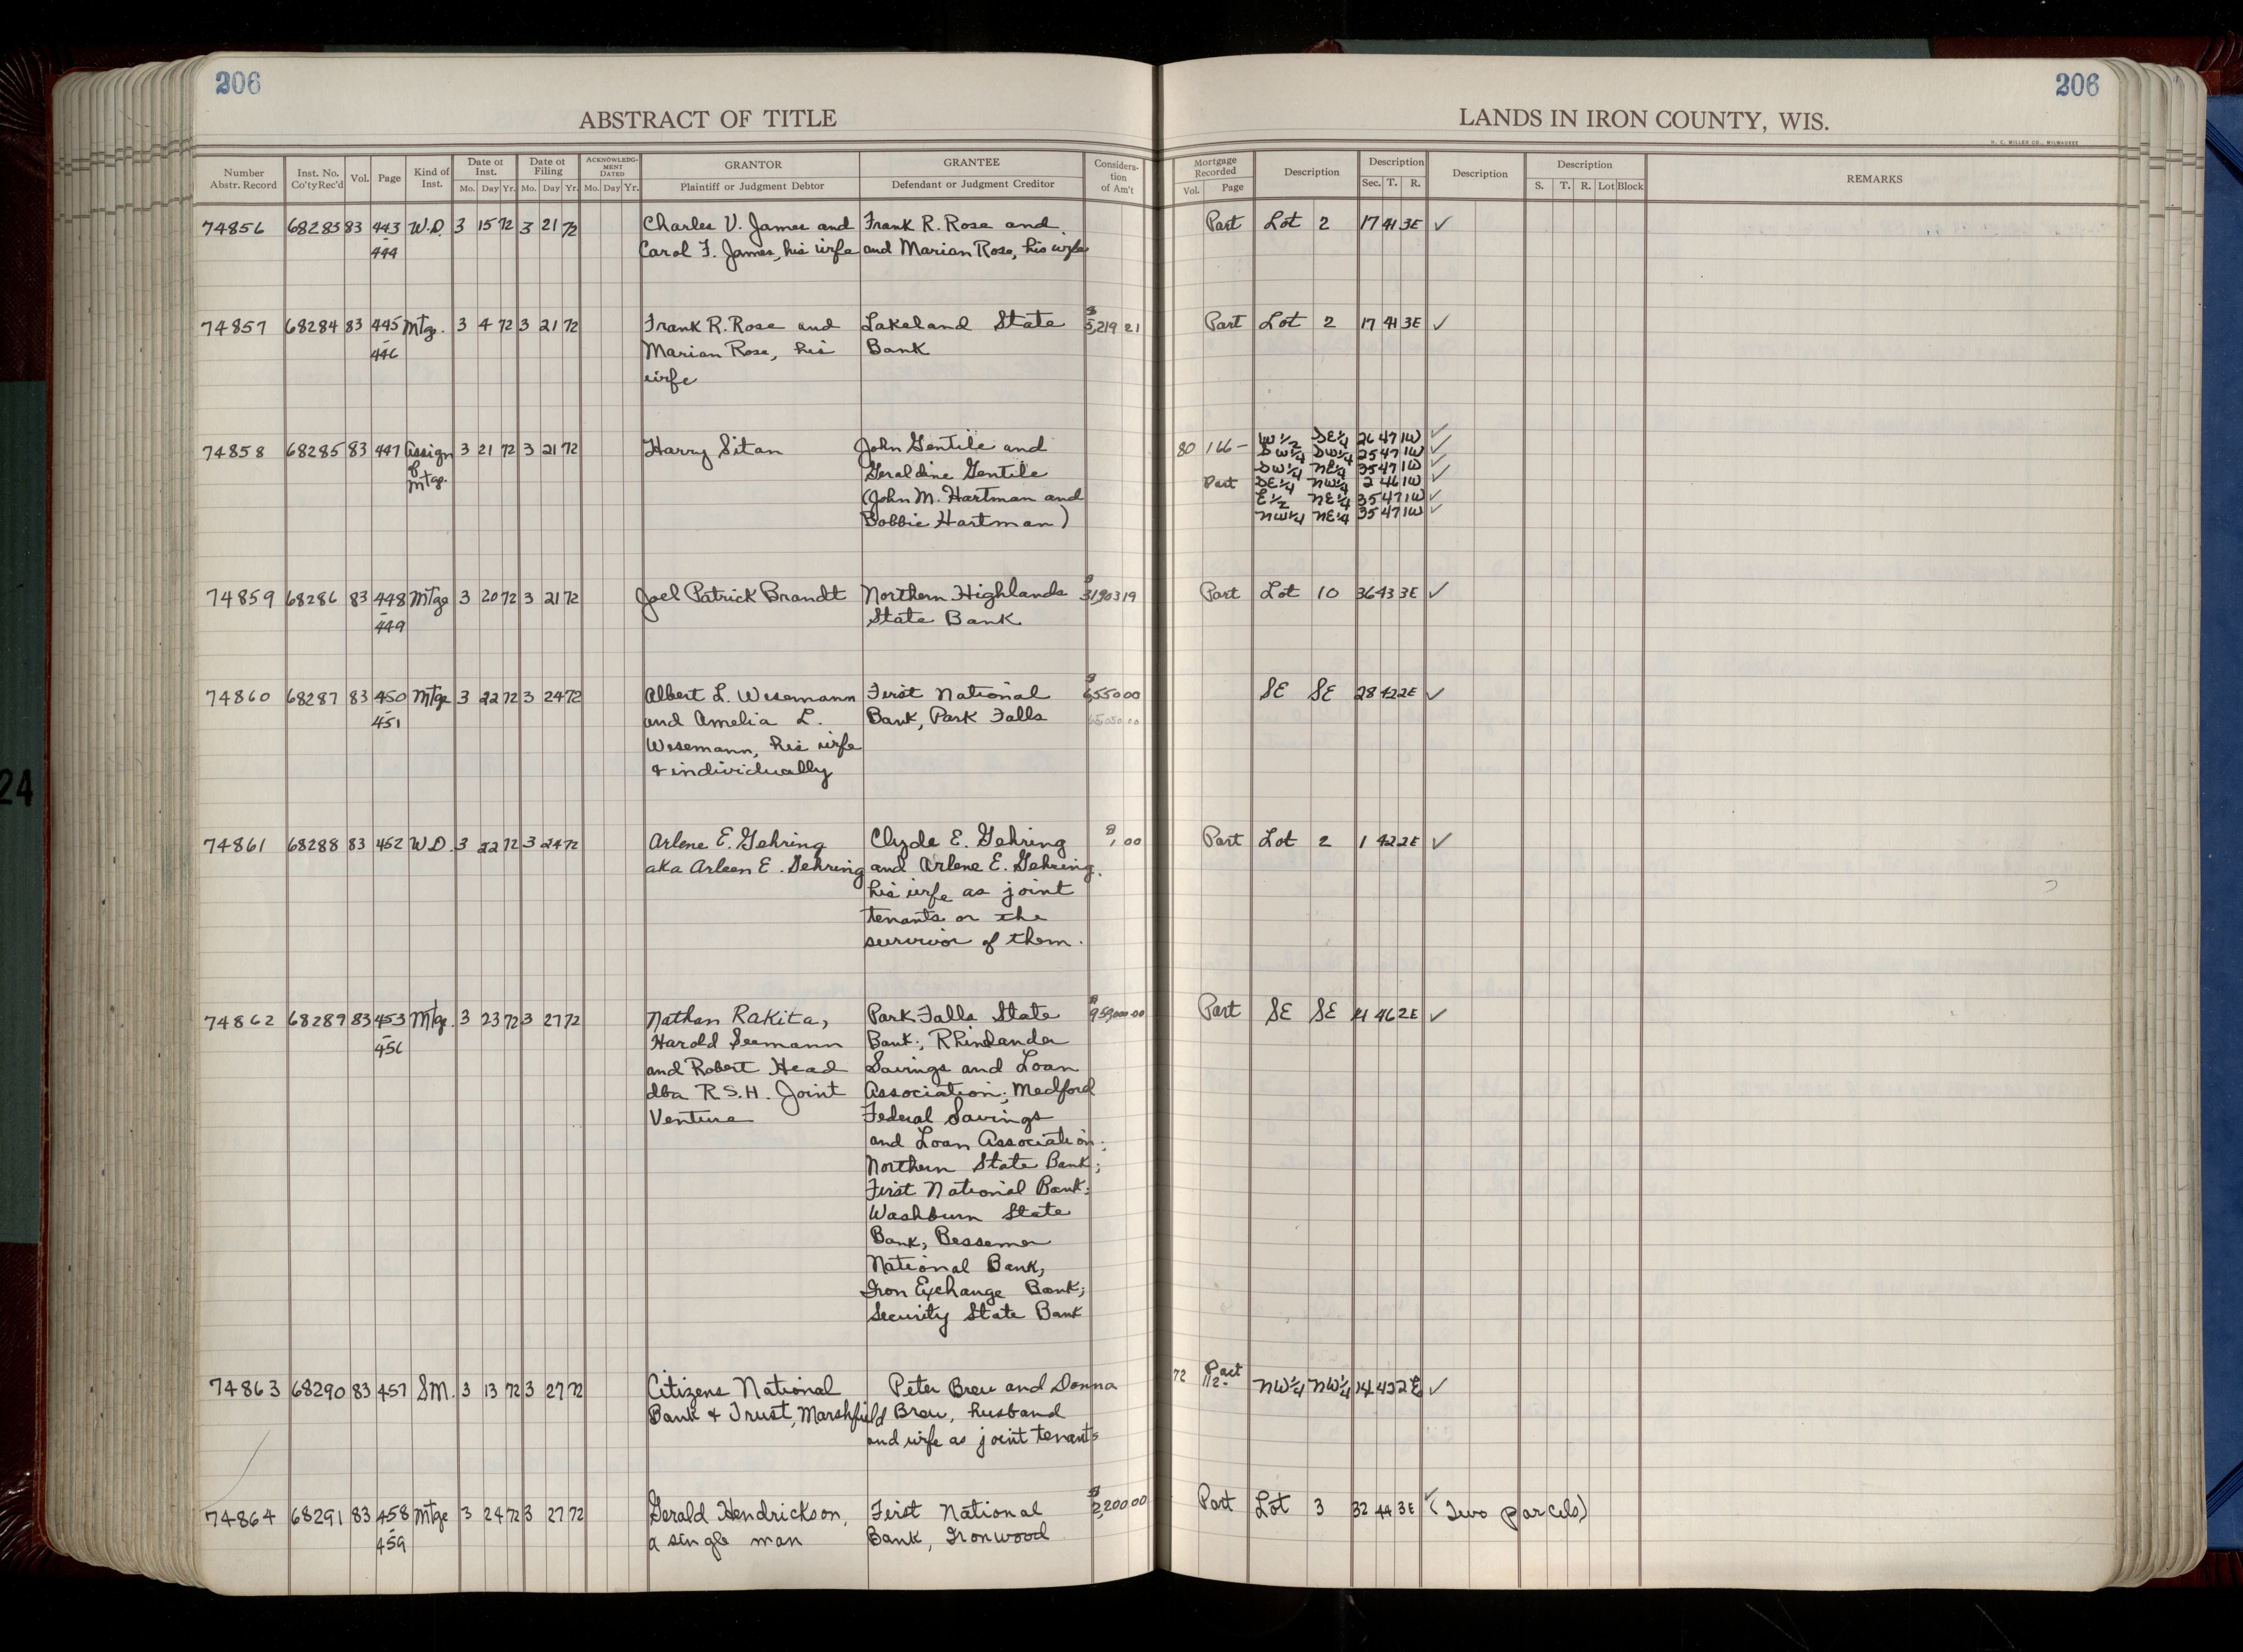 206
206
ABSTRACT OF TITLE
LANDS IN IRON COUNTY, WIS.
H. C. MILLER CO., MILWAUKEE
Number Abstr. Record Inst. No. Co'ty Rec'd Vol. Page Kind of Inst. Date of Inst. Mo. Day Yr. Date of Filing Mo. Day Yr. ACKNOWLEDGMENT DATED Mo. Day Yr. GRANTOR Plaintiff or Judgment Debtor GRANTEE Defendant or Judgment Creditor Consideration of Am't Mortgage Recorded Vol. Page Description Description Sec. T. R. Description Description S. T. R. Lot Block REMARKS
74856 68283 83 443 W.D. 3 15 72 3 21 72 Charles V. James and Frank R. Rose and Part Lot 2 17 41 3E ✓
- 444 Carol F. James, his wife and Marian Rose, his wife
74857 68284 83 445 Mtg. 3 4 72 3 21 72 Frank R. Rose and Lakeland State $5,219 21 Part Lot 2 17 41 3E ✓
- 446 Marian Rose, his Bank
wife
74858 68285 83 447 Assign 3 21 72 3 21 72 Harry Sitan John Gentile and 80 166- W 1/2 SE 1/4 26 47 1W ✓
of Geraldine Gentile SW 1/4 SW 1/4 25 47 1W ✓
Mtg. (John M. Hartman and SW 1/4 NE 1/4 35 47 1W ✓
Bobbie Hartman) Part SE 1/4 NW 1/4 2 46 1W ✓
E 1/2 NE 1/4 35 47 1W ✓
NW 1/4 NE 1/4 35 47 1W ✓
74859 68286 83 448 Mtge 3 20 72 3 21 72 Joel Patrick Brandt Northern Highlands Part Lot 10 36 43 3E ✓
- 449 State Bank
74860 68287 83 450 Mtge 3 22 72 3 24 72 Albert L. Wesemann First National $6,550 00 SE SE 28 42 2E ✓
- 451 and Amelia L. Bank, Park Falls
Wesemann, his wife
& individually
74861 68288 83 452 W.D. 3 22 72 3 24 72 Arlene E. Gehring Clyde E. Gehring $1,00 Part Lot 2 1 42 2E ✓
aka Arleen E. Gehring and Arlene E. Gehring,
his wife as joint
tenants or the
survivor of them.
74862 68289 83 453 Mtge. 3 23 72 3 27 72 Nathan Rakita, Park Falls State Part SE SE 46 2E ✓
- 456 Harold Seemann Bank; Rhinelander
and Robert Head Savings and Loan
dba R.S.H. Joint Association; Medford
Venture Federal Savings
and Loan Association;
Northern State Bank;
First National Bank;
Washburn State
Bank, Bessemer
National Bank,
Iron Exchange Bank;
Security State Bank
74863 68290 83 457 S.M. 3 13 72 3 27 72 Citizens National Peter Breu and Donna 72 Part 112- NW 1/4 NW 1/4 14 42 2E ✓
Bank & Trust, Marshfield Breu, husband
and wife as joint tenants
74864 68291 83 458 Mtge 3 24 72 3 27 72 Gerald Hendrickson, First National $2,200.00 Part Lot 3 32 44 3E ✓ (Two parcels)
- 459 a single man Bank, Ironwood
24